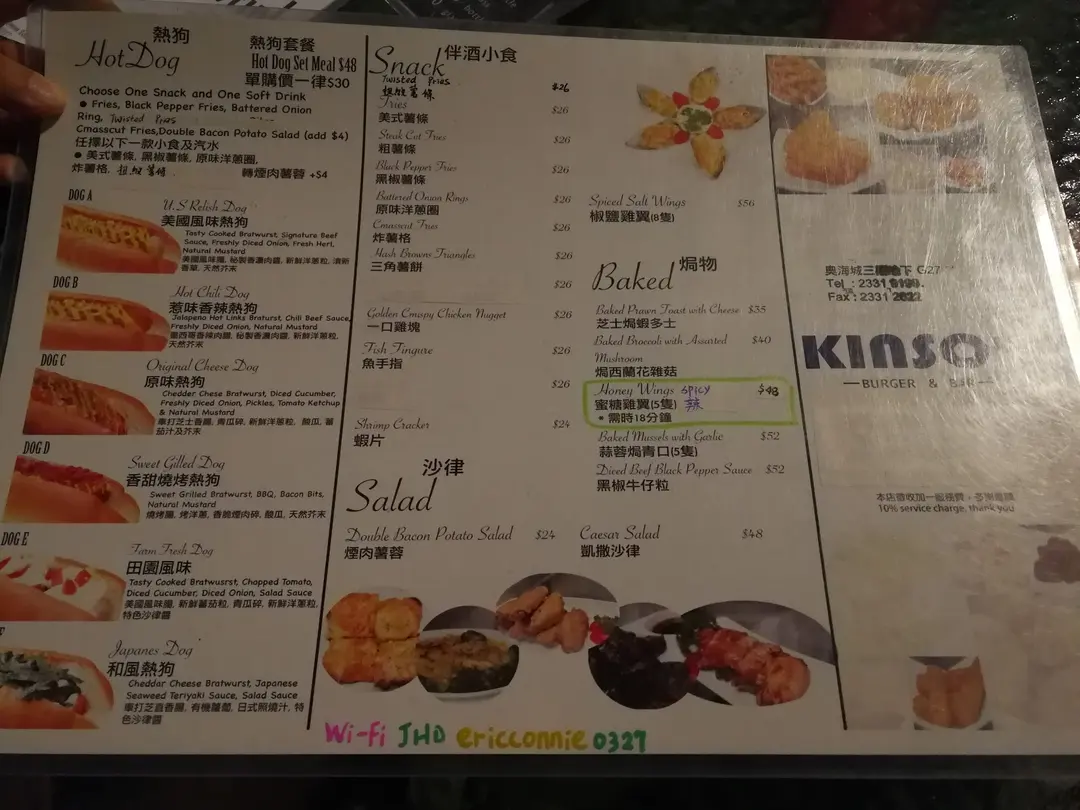 Hot Dog
熱狗
熱狗套餐
Hot Dog Set Meal $48
單購價一律$30
Choose One Snack and One Soft Drink
● Fries, Black Pepper Fries, Battered Onion
Ring, Twisted Fries
Cmasscut Fries,Double Bacon Potato Salad (add $4)
任擇以下一款小食及汽水
● 美式薯條, 黑椒薯條, 原味洋蔥圈,
炸薯格,
轉煙肉薯蓉 +$4
DOG A
U.S Relish Dog
美國風味熱狗
Tasty Cooked Bratwurst, Signature Beef
Sauce, Freshly Diced Onion, Fresh Herl,
Natural Mustard
DOG B
Hot Chili Dog
惹味香辣熱狗
Jalapeno Hot Links Bratwurst, Chili Beef Sauce,
Freshly Diced Onion, Natural Mustard
天然芥末
DOG C
Original Cheese Dog
原味熱狗
Chedder Chese Bratwurst, Diced Cucumber,
Freshly Diced Onion, Pickles, Tomato Ketchup
& Natural Mustard
車打芝士香腸, 青瓜碎, 新鮮洋蔥粒, 酸瓜, 蕃
茄汁及芥末
DOG D
Sweet Gilled Dog
香甜燒烤熱狗
Sweet Grilled Bratwurst, BBQ, Bacon Bits,
Natural Mustard
燒烤腸, 烤洋蔥, 香脆煙肉碎, 酸瓜, 天然芥末
DOG E
Farm Fresh Dog
田園風味
Tasty Cooked Bratwusrst, Chapped Tomato,
Diced Cucumber, Diced Onion, Salad Sauce
美國風味腸, 新鮮蕃茄粒, 青瓜碎, 新鮮洋蔥粒,
特色沙律醬
Japanes Dog
和風熱狗
Cheddar Cheese Bratwurst, Japanese
Seaweed Teriyaki Sauce, Salad Sauce
車打芝直香腸, 有機蘿蔔, 日式照燒汁, 特
色沙律醬
Snack 伴酒小食
Twisted Fries $26
Fries $26
美式薯條
Steak Cut Fries $26
粗薯條
Black Pepper Fries $26
黑椒薯條
Battered Onion Rings $26
原味洋蔥圈
Cmasscut Fries $26
炸薯格
Hash Browns Triangles $26
三角薯餅
$26
Golden Crnspy Chicken Nugget $26
一口雞塊
Fish Fingure $26
魚手指
$26
Shrimp Cracker $24
蝦片
沙律
Salad
Double Bacon Potato Salad $24
煙肉薯蓉
Caesar Salad $48
凱撒沙律
Spiced Salt Wings $56
椒鹽雞翼(8隻)
Baked 焗物
Baked Prawn Toast with Cheese $35
芝士焗蝦多士
Baked Broccoli with Assorted $40
Mushroom
焗西蘭花雜菇
Honey Wings spicy $48
蜜糖雞翼(5隻) 辣
* 需時18分鐘
Baked Mussels with Garlic $52
蒜蓉焗青口(5隻)
Diced Beef Black Pepper Sauce $52
黑椒牛仔粒
Wi-Fi JHD ericconnie 0327
奧海城三期地下 G27
Tel : 2331
Fax : 2331
KINSO
BURGER & BAR
10% service charge, thank you